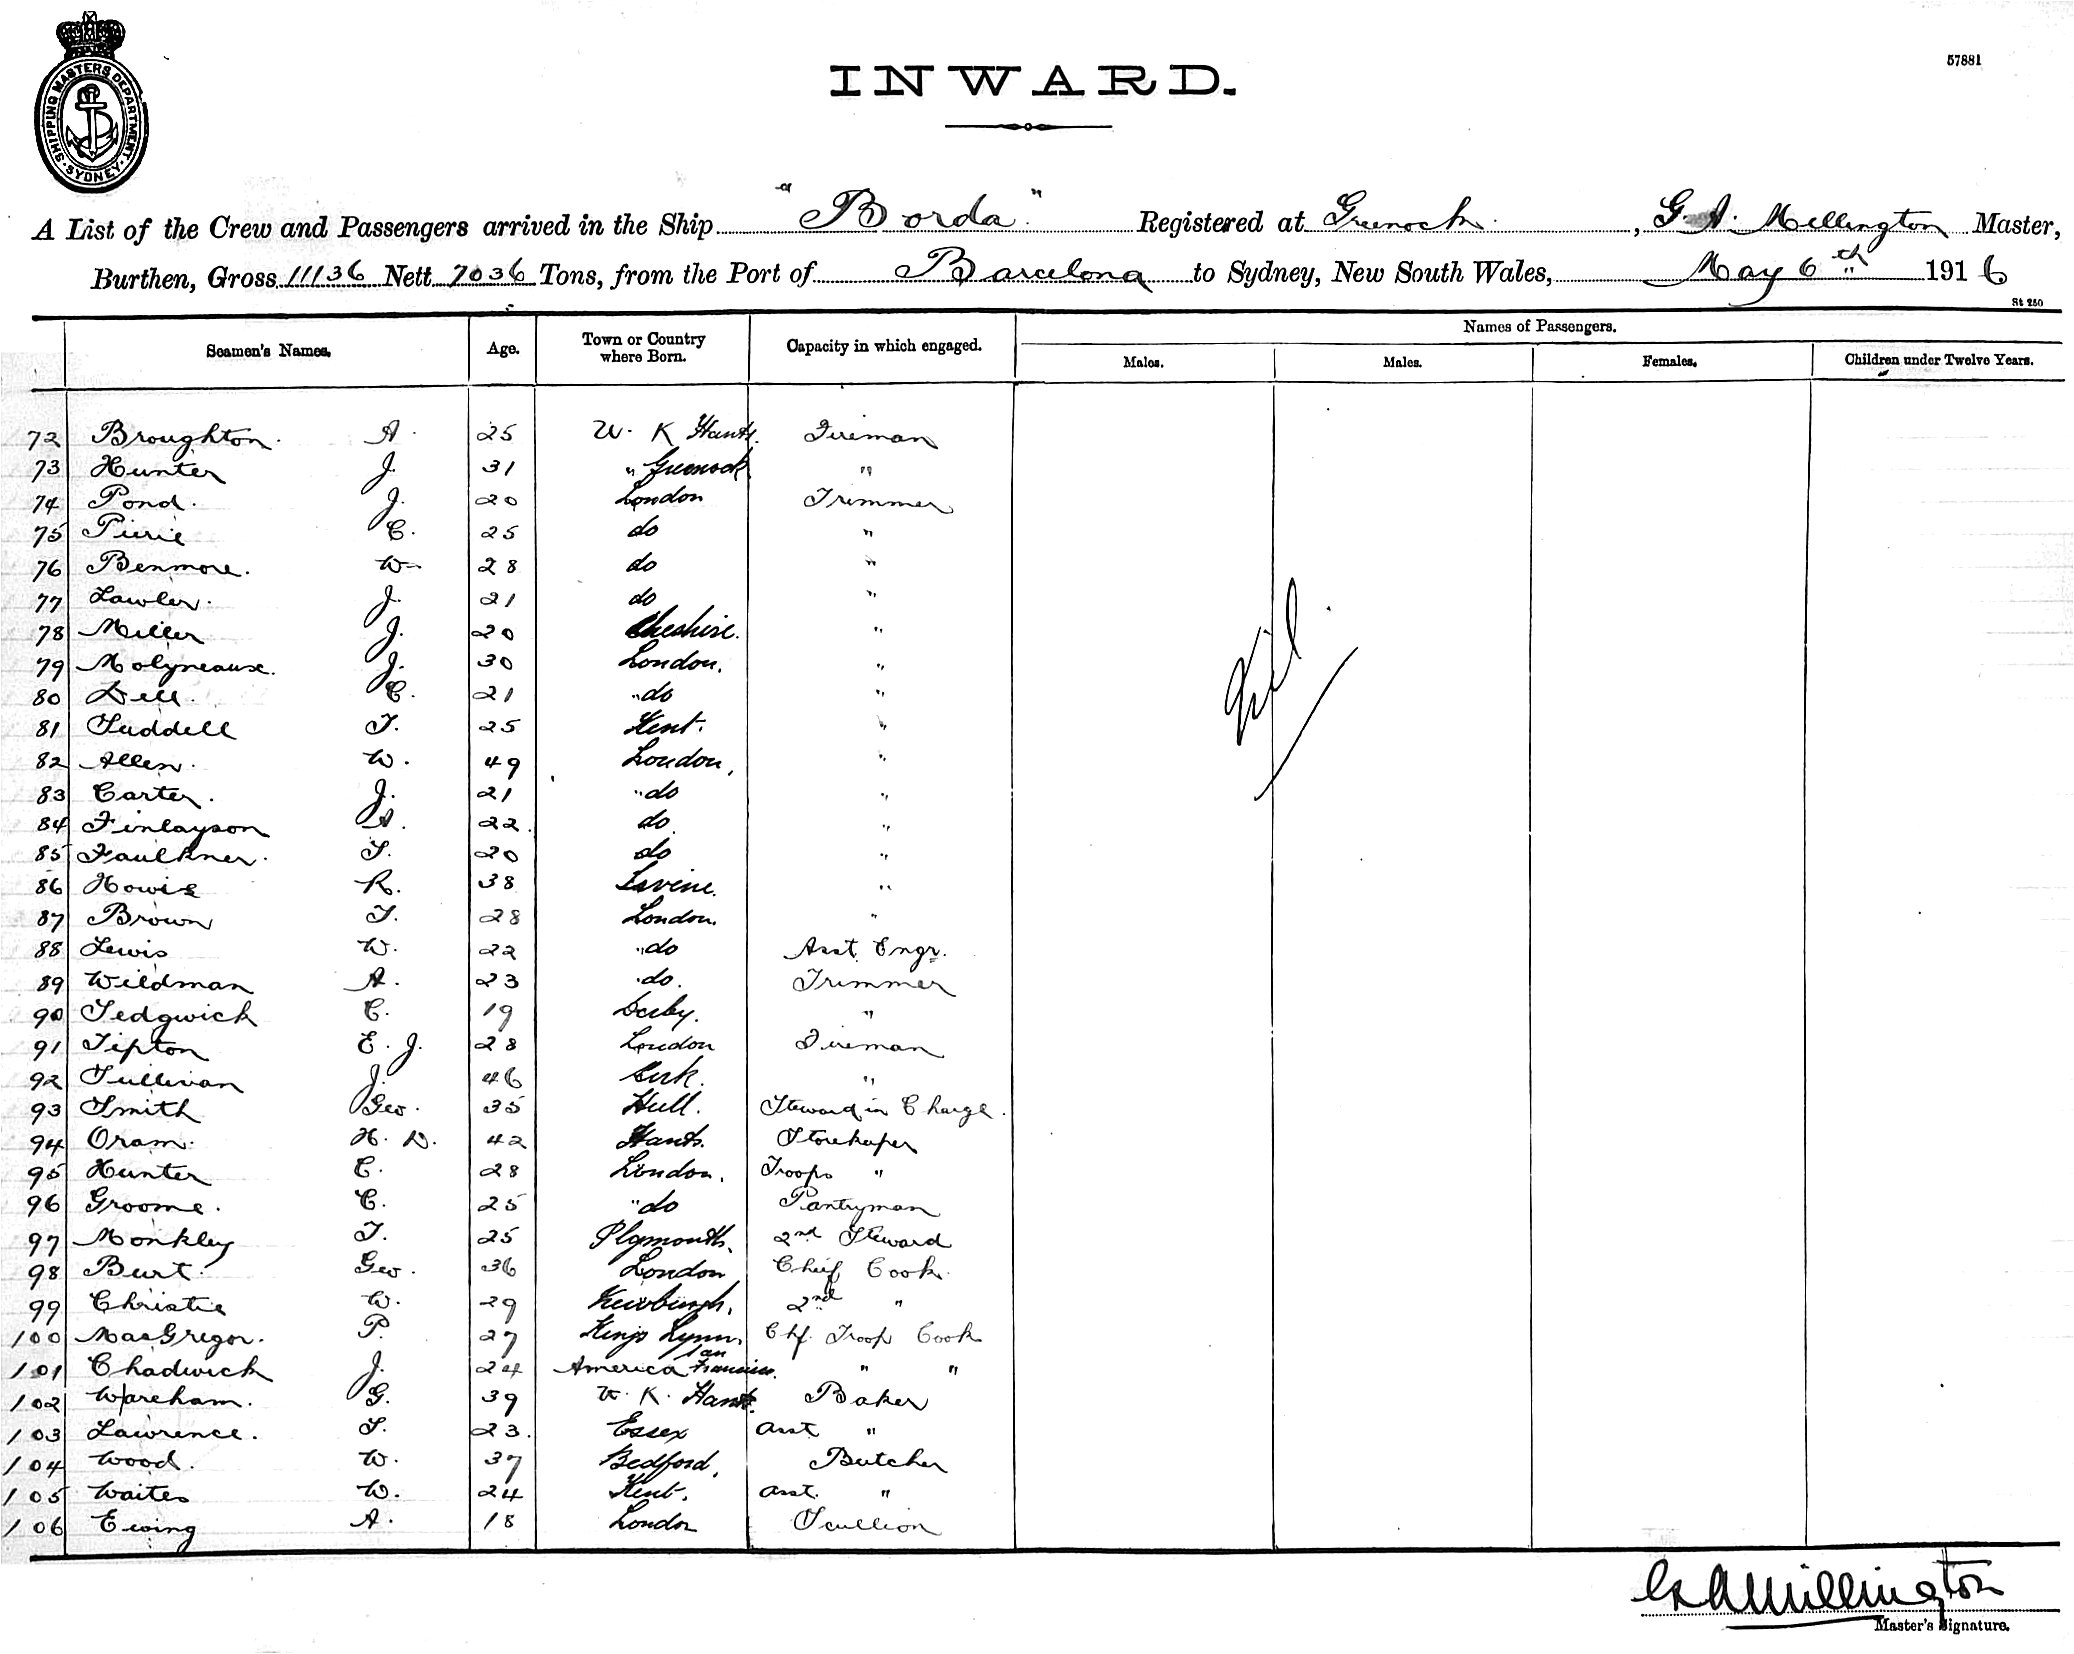 SHIPPING MASTERS DEPARTMENT. SYDNEY
57881
INWARD.
A List of the Crew and Passengers arrived in the Ship "Borda" Registered at Greenock, G. A. Millington Master,
Burthen, Gross 11136 Nett 7036 Tons, from the Port of Barcelona to Sydney, New South Wales, May 6th 1916
St 250
Seamen's Names. Age. Town or Country where Born. Capacity in which engaged. Names of Passengers.
Males. Males. Females. Children under Twelve Years.
72 Broughton. A. 25 U. K Hants. Fireman
73 Hunter J. 31 " Greenock "
74 Pond. J. 20 London Trimmer
75 Pirie C. 25 do "
76 Benmore. W 28 do "
77 Lawler. J. 21 do "
78 Miller J. 20 Cheshire. "
79 Molyneaux. J. 30 London. "
80 Dell. C. 21 " do "
81 Suddell T. 25 Kent. "
82 Allen. W. 49 London. "
83 Carter. J. 21 " do "
84 Finlayson A. 22. do. "
85 Faulkner. S. 20 do "
86 Howie R. 38 Irvine. "
87 Brown T. 28 London. "
88 Lewis W. 22 " do Asst. Engr.
89 Wildman A. 23 do. Trimmer
90 Sedgwick C. 19 Derby. "
91 Tipton E. J. 28 London Fireman
92 Sullivan J. 46 Cork. "
93 Smith Geo. 35 Hull. Steward in Charge.
94 Oram. H. D. 42 Hants. Storekeeper
95 Hunter C. 28 London. Troops "
96 Groome. C. 25 " do Pantryman
97 Monkley T. 25 Plymouth. 2nd Steward
98 Burt. Geo. 36 London Chief Cook.
99 Christie W. 29 Newburgh. 2nd "
100 MacGregor. P. 27 Kings Lynn. Chf. Troop Cook
101 Chadwick J. 24 America San Francisco. " "
102 Wareham. G. 39 U. K. Hants. Baker
103 Lawrence. S. 23. Essex Asst "
104 Wood. W. 37 Bedford. Butcher
105 Waites W. 24 Kent. Asst. "
106 Ewing A. 18 London Scullion
Nil
G A Millington
Master's Signature.